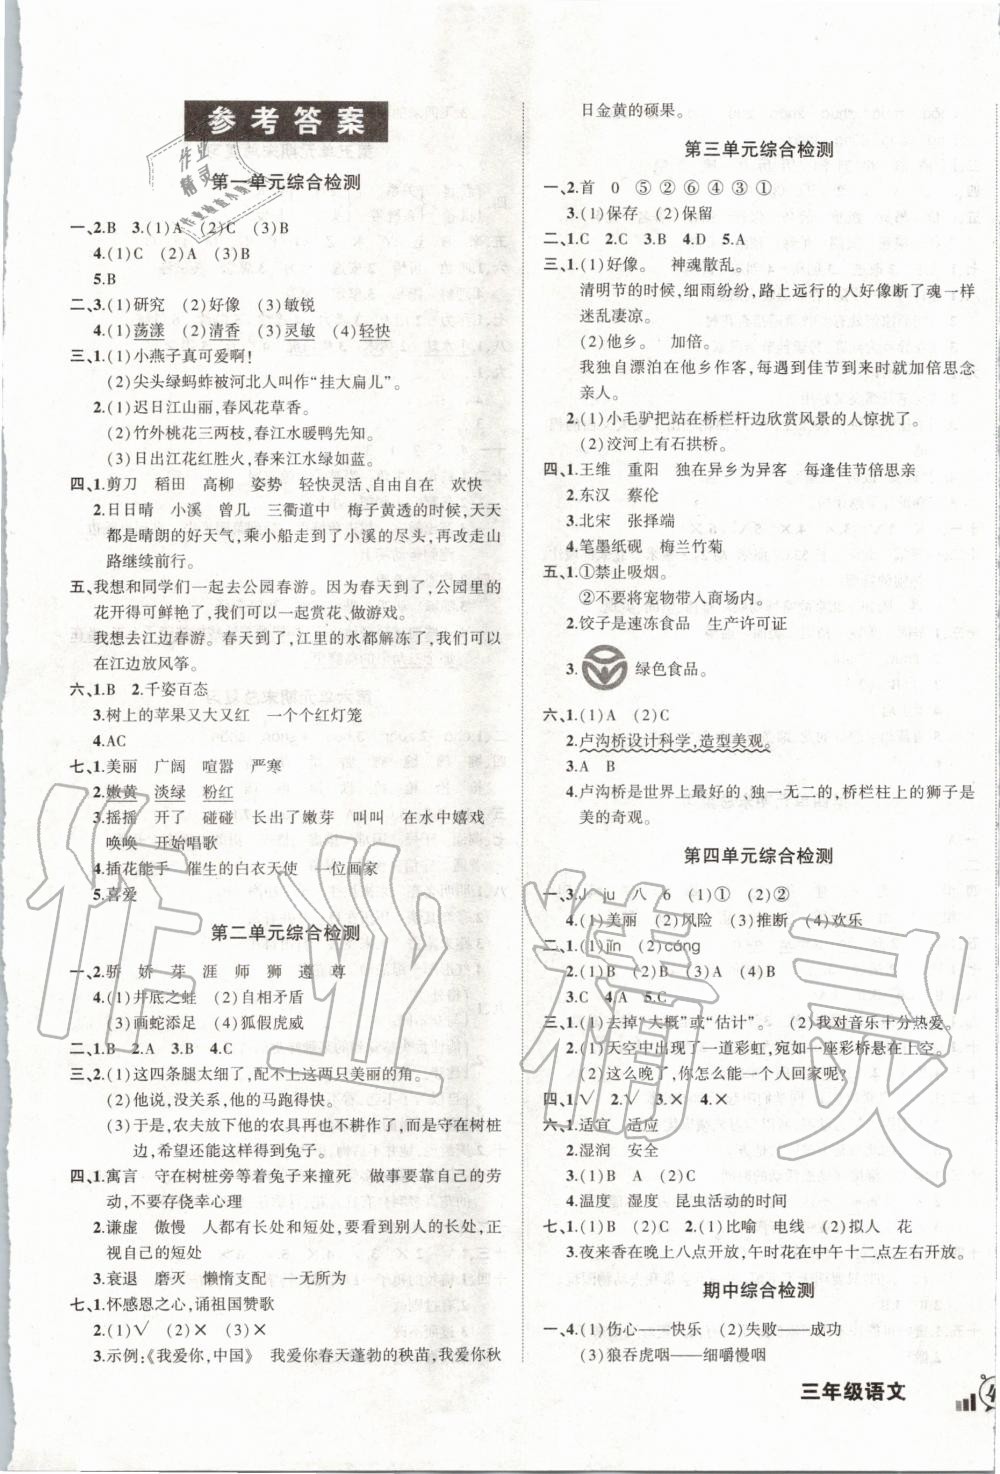 参考答案
第一单元综合检测
一、2.B 3.(1)A (2)C (3)B
4.(1)C (2)A (3)B
5.B
二、3.(1)研究 (2)好像 (3)敏锐
4.(1)荡漾 (2)清香 (3)灵敏 (4)轻快
三、1.(1)小燕子真可爱啊!
(2)尖头绿蚂蚱被河北人叫作“挂大扁儿”。
2.(1)迟日江山丽,春风花草香。
(2)竹外桃花三两枝,春江水暖鸭先知。
(3)日出江花红胜火,春来江水绿如蓝。
四、1.剪刀 稻田 高柳 姿势 轻快灵活、自由自在 欢快
2.日日晴 小溪 曾几 三衢道中 梅子黄透的时候,天天
都是晴朗的好天气,乘小船走到了小溪的尽头,再改走山
路继续前行。
五、我想和同学们一起去公园春游。因为春天到了,公园里的
花开得可鲜艳了,我们可以一起赏花、做游戏。
我想去江边春游。春天到了,江里的水都解冻了,我们可以
在江边放风筝。
六、1.B 2.千姿百态
3.树上的苹果又大又红 一个个红灯笼
4.AC
七、1.美丽 广阔 喧嚣 严寒
2.嫩黄 淡绿 粉红
3.摇摇 开了 碰碰 长出了嫩芽 叫叫 在水中嬉戏
唤唤 开始唱歌
4.插花能手 催生的白衣天使 一位画家
5.喜爱
第二单元综合检测
一、2.骄 娇 芽 涯 师 狮 遵 尊
4.(1)井底之蛙 (2)自相矛盾
(3)画蛇添足 (4)狐假虎威
二、1.B 2.A 3.B 4.C
三、2.(1)这四条腿太细了,配不上这两只美丽的角。
(2)他说,没关系,他的马跑得快。
(3)于是,农夫放下他的农具再也不耕作了,而是守在树桩
边,希望还能这样得到兔子。
四、1.寓言 守在树桩旁等着兔子来撞死 做事要靠自己的劳
动,不要存侥幸心理
2.谦虚 傲慢 大家都有长处和短处,要看到别人的长处,正
视自己的短处
3.衰退 磨灭 懒惰支配 一无所为
七、1.怀感恩之心,诵祖国赞歌
2.(1)√ (2)× (3)×
3.示例:《我爱你,中国》 我爱你春天蓬勃的秧苗,我爱你秋
日金黄的硕果。
第三单元综合检测
一、2.首 0 ⑤②⑥④③①
3.(1)保存 (2)保留
二、1.C 2.C 3.B 4.D 5.A
三、1.(1)好像。 神魂散乱。
清明节的时候,细雨纷纷,路上远行的人好像断了魂一样
迷乱凄凉。
(2)他乡。 加倍。
我独自漂泊在他乡作客,每遇到佳节到来时就加倍思念
亲人。
2.(1)小毛驴把站在桥栏杆边欣赏风景的人惊扰了。
(2)洨河上有石拱桥。
四、1.王维 重阳 独在异乡为异客 每逢佳节倍思亲
2.东汉 蔡伦
3.北宋 张择端
4.笔墨纸砚 梅兰竹菊
五、1.①禁止吸烟。
②不要将宠物带入商场内。
2.饺子是速冻食品 生产许可证
3. 绿色食品。
六、1.(1)A (2)C
2.卢沟桥设计科学,造型美观。
3.A B
4.卢沟桥是世界上最好的,独一无二的,桥栏柱上的狮子是
美的奇观。
第四单元综合检测
一、3.J ju 八 6 (1)① (2)②
4.(1)美丽 (2)风险 (3)推断 (4)欢乐
二、1.(1)jīn (2)cáng
2.(1)B (2)A (3)A (4)B
3.C 4.A 5.C
三、1.(1)去掉“大概”或“估计”。 (2)我对音乐十分热爱。
2.(1)天空中出现了一道彩虹,宛如一座彩桥悬在上空。
(2)难道我忍心丢下你一个人回家呢?
四、1.√ 2.√ 3.× 4.×
六、1.适宜 适应
2.湿润 安全
3.(1)B (2)A
4.温度 湿度 昆虫活动的时间
七、1.(1)B (2)B 2.(1)比喻 电线 (2)拟人 花
3.夜来香在晚上八点开放,午时花在中午十二点左右开放。
期中综合检测
一、4.(1)伤心——快乐 (2)失败——成功
(3)狼吞虎咽——细嚼慢咽
三年级语文
作业精灵
作业精灵